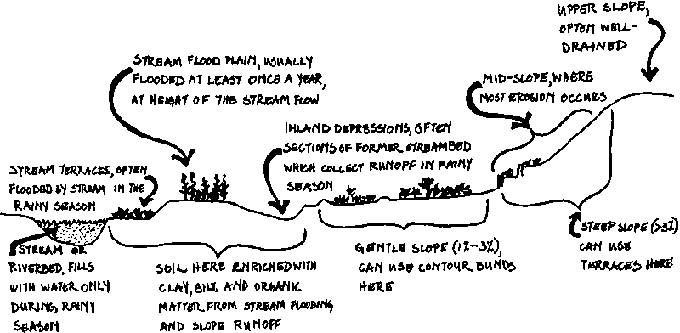 UPPER SLOPE,
OFTEN WELL-
DRAINED
STREAM FLOOD PLAIN, USUALLY
FLOODED AT LEAST ONCE A YEAR,
AT HEIGHT OF THE STREAM FLOW
MID-SLOPE, WHERE
MOST EROSION OCCURS
INLAND DEPRESSIONS, OFTEN
SECTIONS OF FORMER STREAMBED
WHICH COLLECT RUNOFF IN RAINY
SEASON
STREAM TERRACES, OFTEN
FLOODED BY STREAM IN THE
RAINY SEASON
STREAM OR
RIVERBED, FILLS
WITH WATER ONLY
DURING, RAINY
SEASON
SOIL HERE ENRICHED WITH
CLAY, SILT, AND ORGANIC
MATTER FROM STREAM FLOODING
AND SLOPE RUNOFF
GENTLE SLOPE (1%-3%),
CAN USE CONTOUR BUNDS
HERE
STEEP SLOPE (>3%)
CAN USE
TERRACES HERE